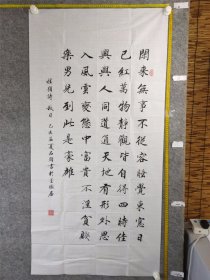 閑來無事不從容睡覺東窓日
已紅萬物靜觀皆自得四時佳
興與人同道通天地有形外思
入風雲變態中富貴不淫貧賤
樂男兒到此是豪雄
程顥詩 秋日 乙未孟夏